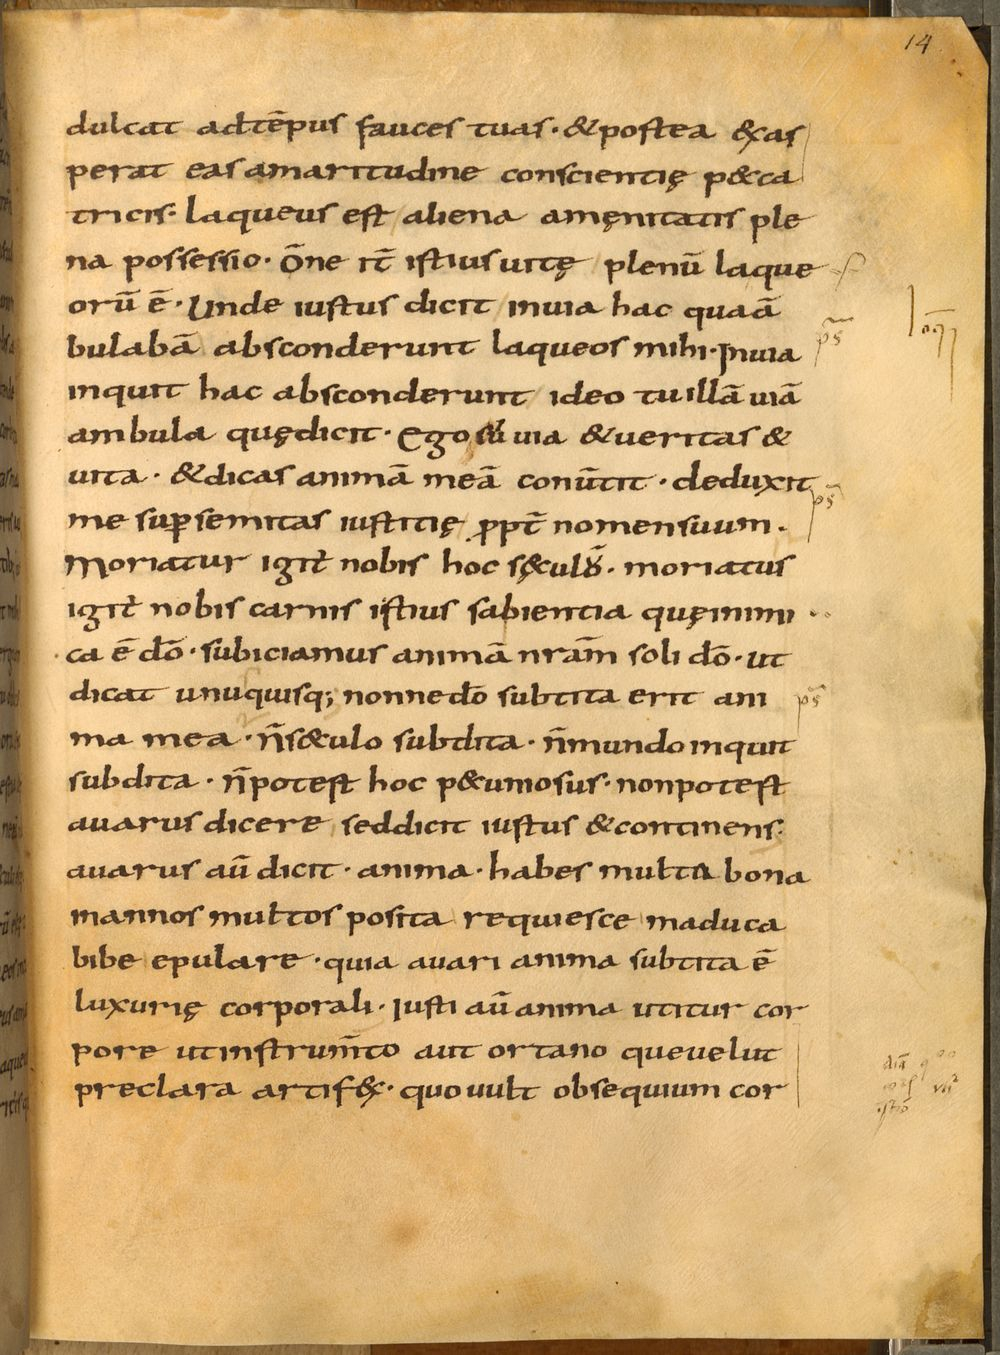 14
dulcat adtēpus fauces tuas · &postea &xas
perat eas amaritudine conscientię p&ca
tricis · laqueus est aliena amęnitatis ple
na possessio · Ōne it̄ istius uitę plenū laque
orū ē · Unde iustus dicit inuia hac quaā
bulabā absconderunt laqueos mihi · Inuia
inquit hac absconderunt ideo tu illā uiā
ambula quędicit · Ego sū uia &ueritas &
uita · &dicas animā meā conūtit · deduxit
ps̄
me sup semitas iustitię ppt̄ nomen suum ·
Moriatur igit̄ nobis hoc sęculū · moriatus
igit̄ nobis carnis istius sapientia quęinimi
ca ē dō · subiciamus animā nrām soli dō · ut
dicat unuquisq; nonne dō subtita erit ani
ps̄
ma mea · n̄ s&ulo subdita · n̄ mundo inquit
subdita · n̄ potest hoc p&uniosus · non potest
auarus dicere sed dicit iustus &continens ·
auarus aū dicit · anima · habes multa bona
inannos multos posita requiesce maduca
bibe epulare · quia auari anima subtita ē
luxurię corporali · Iusti aū anima utitur cor
pore ut instrum̄to aut ortano que uelut
preclara artif&x · quo uult obsequium cor